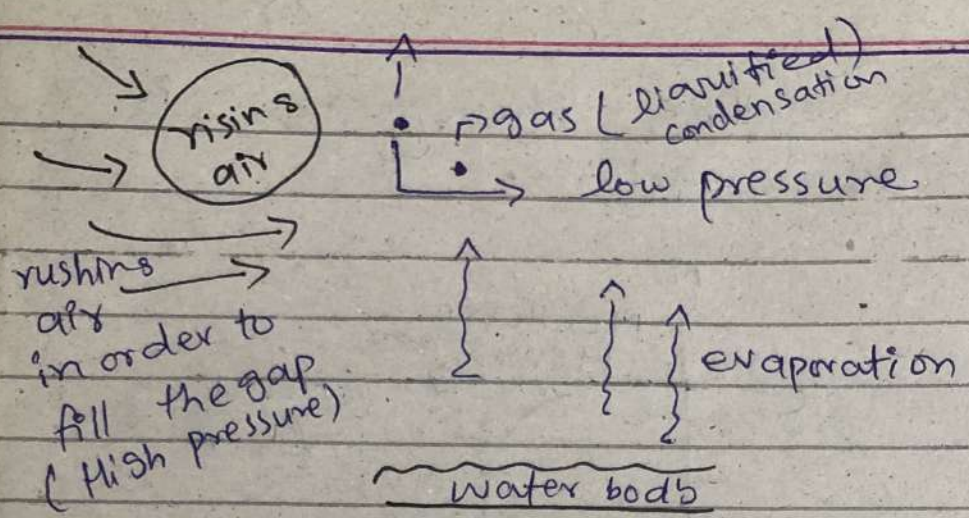 rising
air
gas (liquified)
condensation
low pressure
rushing
air
in order to
fill the gap
(High pressure)
evaporation
water body